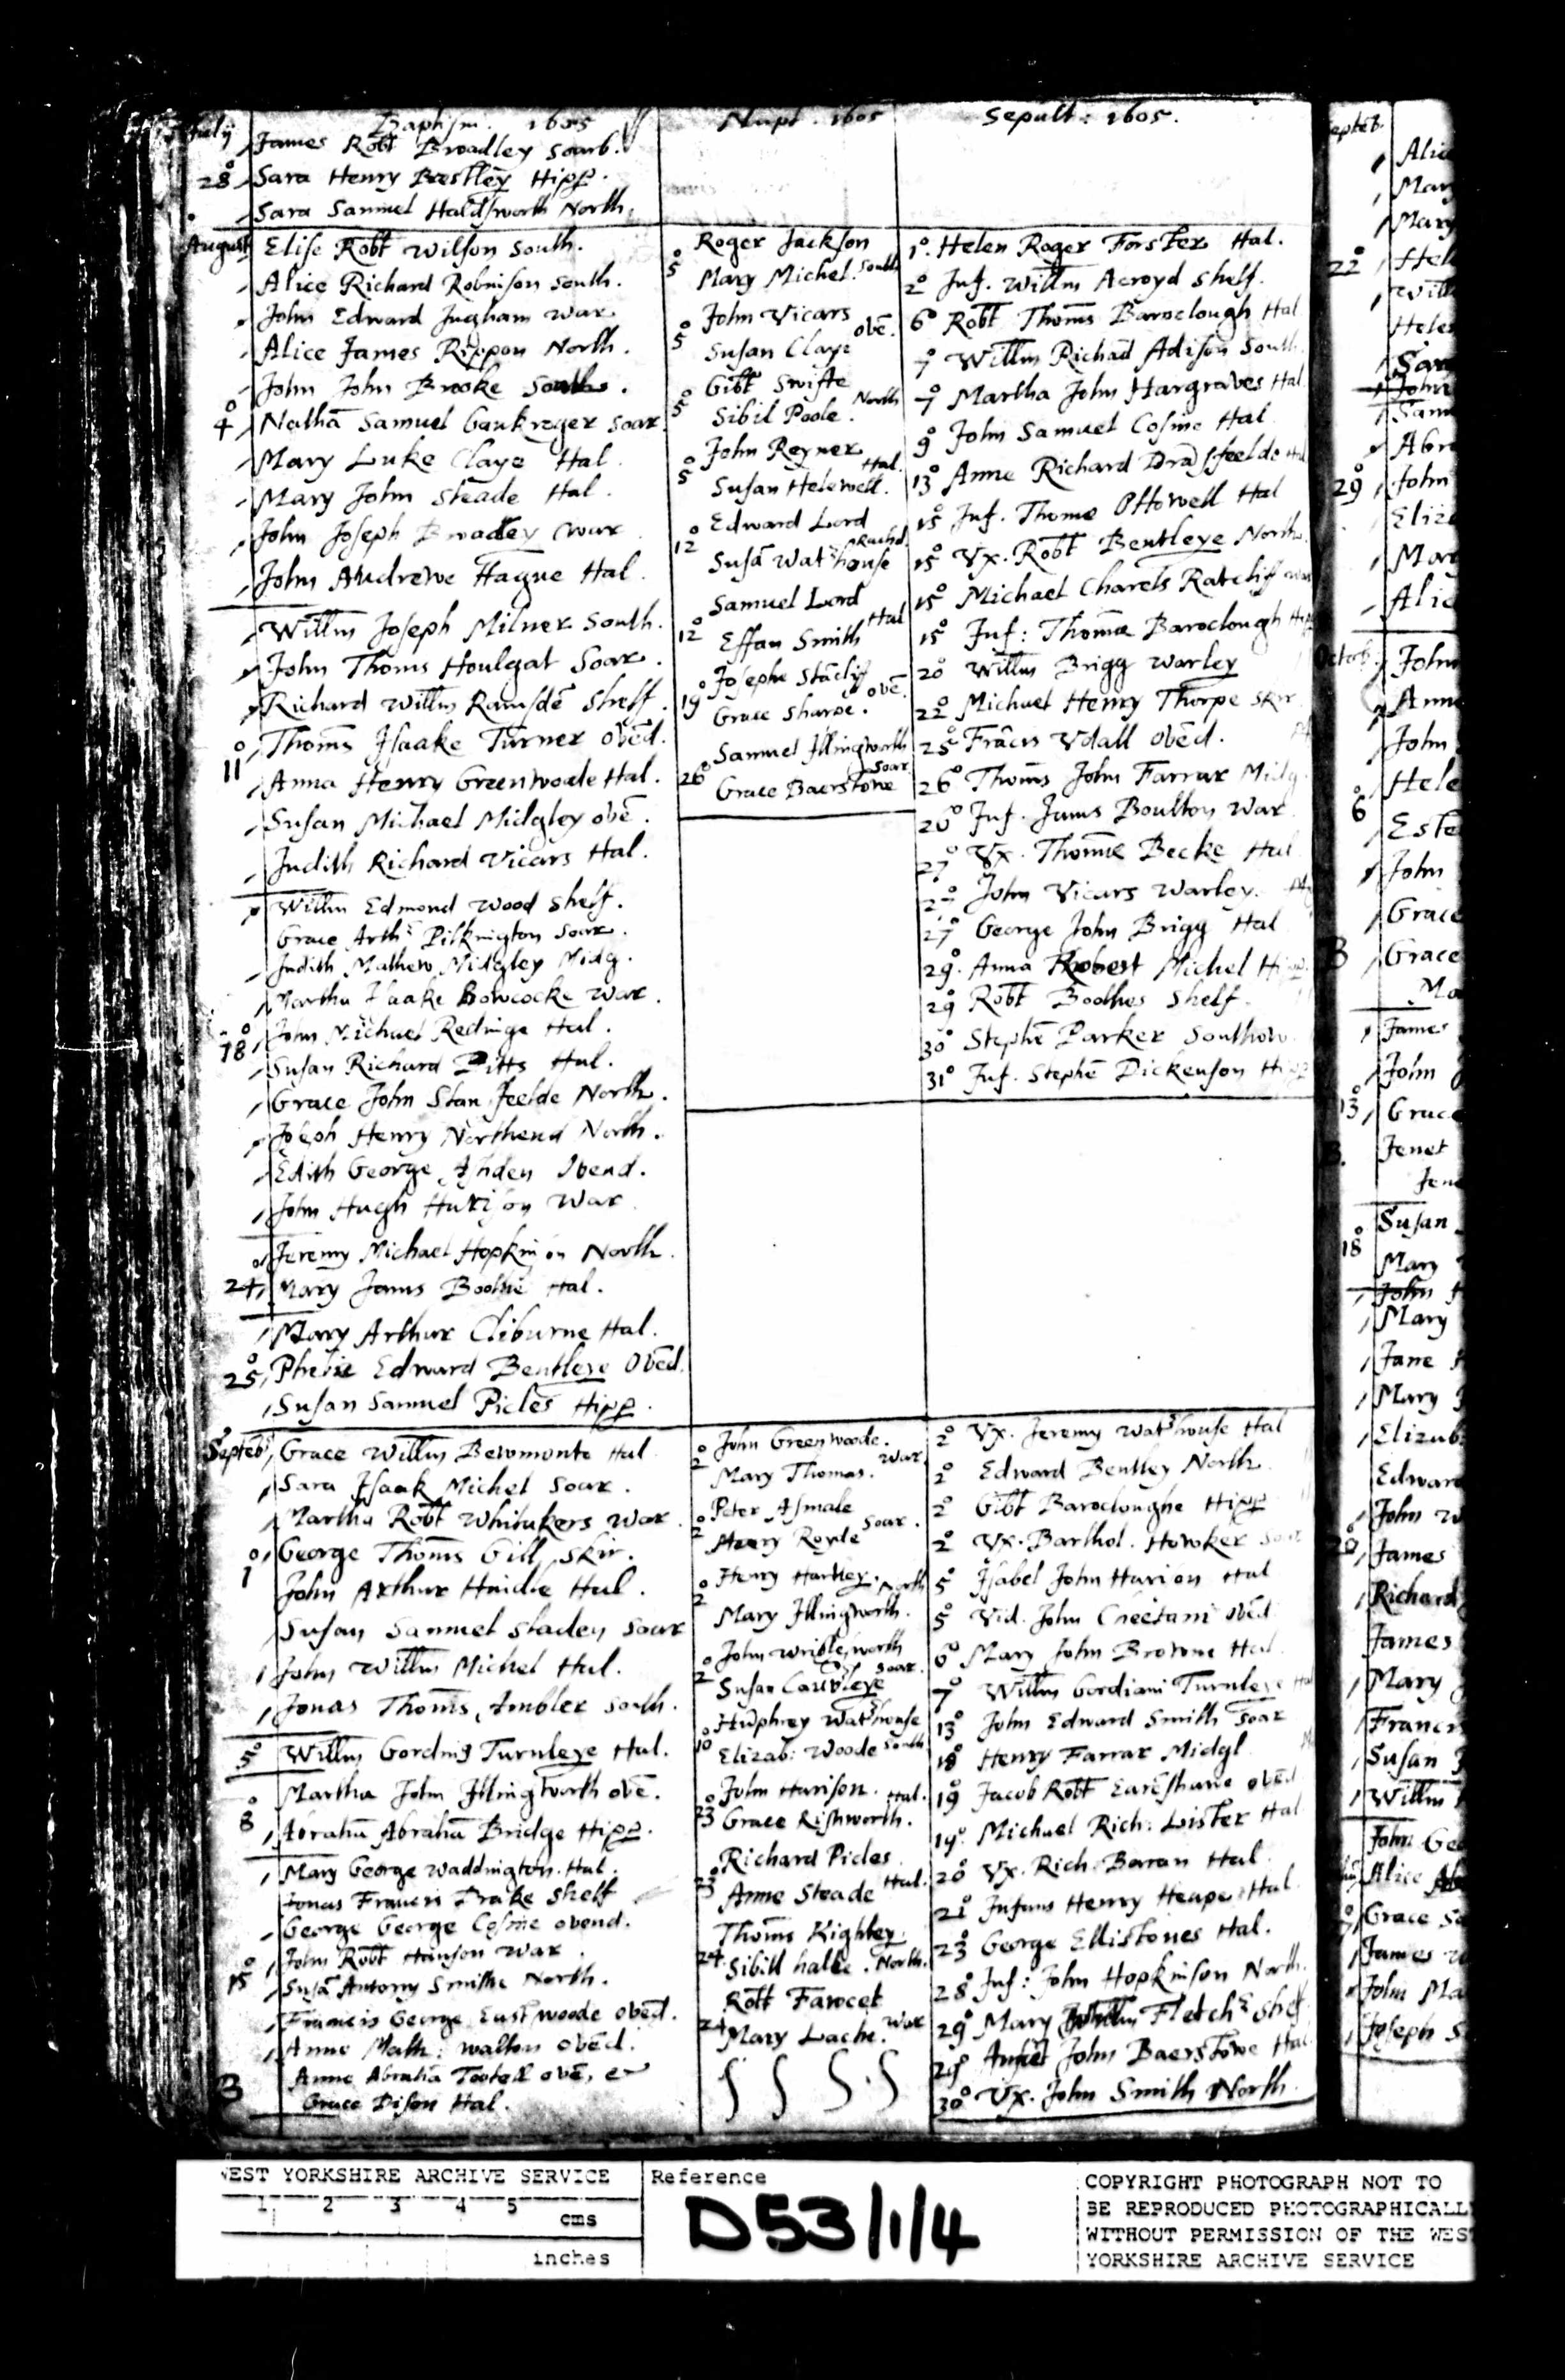 July
Baptism. 1605
James Robt Broadley Soarb.
28 Sara Henry Beestley Hipp.
Sara Samuel Haldsworth North.
August Elise Robt Wilson South.
Alice Richard Robinson South.
John Edward Ingham War
Alice James Rippon North.
John John Brooke South.
4 Nathā Samuel Gaukroger Soar
Mary Luke Claye Hal.
Mary John Steade Hal.
John Joseph Broadley War
John Andrewe Hague Hal.
Willm Joseph Milner South.
John Thoms Houlgat Soar.
Richard Willm Ramsdē Shelf.
11 Thoms Isaake Turner Ovēd.
Anna Henry Greenwoode Hal.
Susan Michael Midgley ovē.
Judith Richard Vicars Hal.
Willm Edmond Wood Shelf.
Grace Arthr Pilkington Soar.
Judith Mathew Midgley Midg.
Martha Isaake Bowcocke War.
18 John Michael Redinge Hal.
Susan Richard Pitts Hal.
Grace John Stanfeelde North.
Joseph Henry Northend North.
Edith George Ashden Ovend.
John Hugh Harison War
Jeremy Michael Hopkinson North.
24 Mary Jams Boothe Hal.
Mary Arthur Cliburne Hal.
25 Phebie Edward Bentleye Ovēd.
Susan Samuel Picles Hipp.
Septeb Grace Willm Bewmonte Hal
Sara Isaak Michel Soar.
Martha Robt Whitakers War
1 George Thoms Gill Skir.
John Arthur Haidle Hal.
Susan Samuel Staden Soar
John Willm Michel Hal.
Jonas Thoms Ambler South.
5 Willm Gording Turnleye Hal.
Martha John Illingworth ovē.
8 Abrahā Abrahā Bridge Hipp.
Mary George Waddington Hal.
Jonas Francis Drake Shelf
George George Cosine ovend.
15 John Robt Hanson War
Susā Antony Smithe North.
Francis George Eastwoode Ovēd.
Anne Math: Walton Ovēd.
B Anne Abrahā Tootell ovē, et
Grace Dison Hal.
Nupt. 1605
Roger Jackson
5 Mary Michel. South
John Vicars
5 Susan Claye ovē.
Gibt Swifte
5 Sibil Poole. North
John Reyner
5 Susan Helewell. Hal.
Edward Lord
12 Susā Watrhouse Rachd.
Samuel Lord
12 Effan Smith Hal
Josephe Stāclif
19 Grace Sharpe. ovē.
Samuel Illingworth
26 Grace Baerstowe Soar
John Greenwoode.
2 Mary Thomas. War
Peter Asmale
2 Mary Royde Soar.
Henry Hartley.
2 Mary Illingworth. North
John Wriglesworth
2 Susan Cawvleye Soar.
Hūphrey Watrhouse
10 Elizab: Woode South
John Harison. Hal.
23 Grace Rishworth.
Richard Picles
23 Anne Steade Hal.
Thoms Kighley
24 Sibill halle. North.
Robt Fawcet
24 Mary Lache. War
Sepult: 1605.
1 Helen Roger Forster Hal.
2 Inf. Willm Acroyd Shelf.
6 Robt Thoms Baroclough Hal
7 Willm Richad Adison South
7 Martha John Hargraves Hal
9 John Samuel Cosine Hal
13 Anne Richard Drāsfeelde Hal
15 Inf. Thome Ottowell Hal
15 Vx. Robt Bentleye North.
15 Michael Charels Ratclif War
15 Inf: Thomæ Baroclough Hip
20 Willm Brigg Warley
22 Michael Henry Thorpe Skir
25 Frācis Vdall Ovēd.
26 Thoms John Farrar Midg
26 Inf. Jams Boulton War
27 Vx. Thomæ Becke Hal
27 John Vicars Warley.
27 George John Brigg Hal
29. Anna Robert Michel Hipp.
29 Robt Boothes Shelf.
30 Stephē Parker Southow
31 Inf. Stephē Dickenson Hipp
2 Vx. Jeremy Watrhouse Hal
2 Edward Bentley North
2 Gibt Barocloughe Hipp
2 Vx. Barthol. Howker Soar
5 Isabel John Harison Hal
5 Vid. John Cheetam ovēd
6 Mary John Browne Hal
7 Willm Gordiani Turnleye Hal
13 John Edward Smith Soar
18 Henry Farrar Midgl
19 Jacob Robt Earēshawe ovēd
19 Michael Rich: Lister Hal
20 Vx. Rich: Baran Hal
21 Infans Henry Heape Hal
23 George Ellistones Hal.
28 Inf: John Hopkinson North.
29 Mary Willm Fletchr Shelf
29 John Baerstowe Hal
30 Vx. John Smith North.
eptēb.
Alic
Mar
Mary
22 Hel
Will
Helen
Sara
John
Sam
Abra
29 John
Eliza
Mary
Alic
Octob. John
Anne
John
Hele
6 Este
John
Grace
B Grace
Ma
James
John
13 Grace
B. Jenet
Jene
Susan
18 Mary
John
Mary
Jane
Mary
Elizab
Edward
John W
20 James
Richard
James
Mary
Francis
Susan
Willm
John Geo
Alice
Grace Sa
James
John Ma
Joseph S
WEST YORKSHIRE ARCHIVE SERVICE
1 2 3 4 5 cms
inches
Reference
D53/1/4
COPYRIGHT PHOTOGRAPH NOT TO
BE REPRODUCED PHOTOGRAPHICALL
WITHOUT PERMISSION OF THE WEST
YORKSHIRE ARCHIVE SERVICE